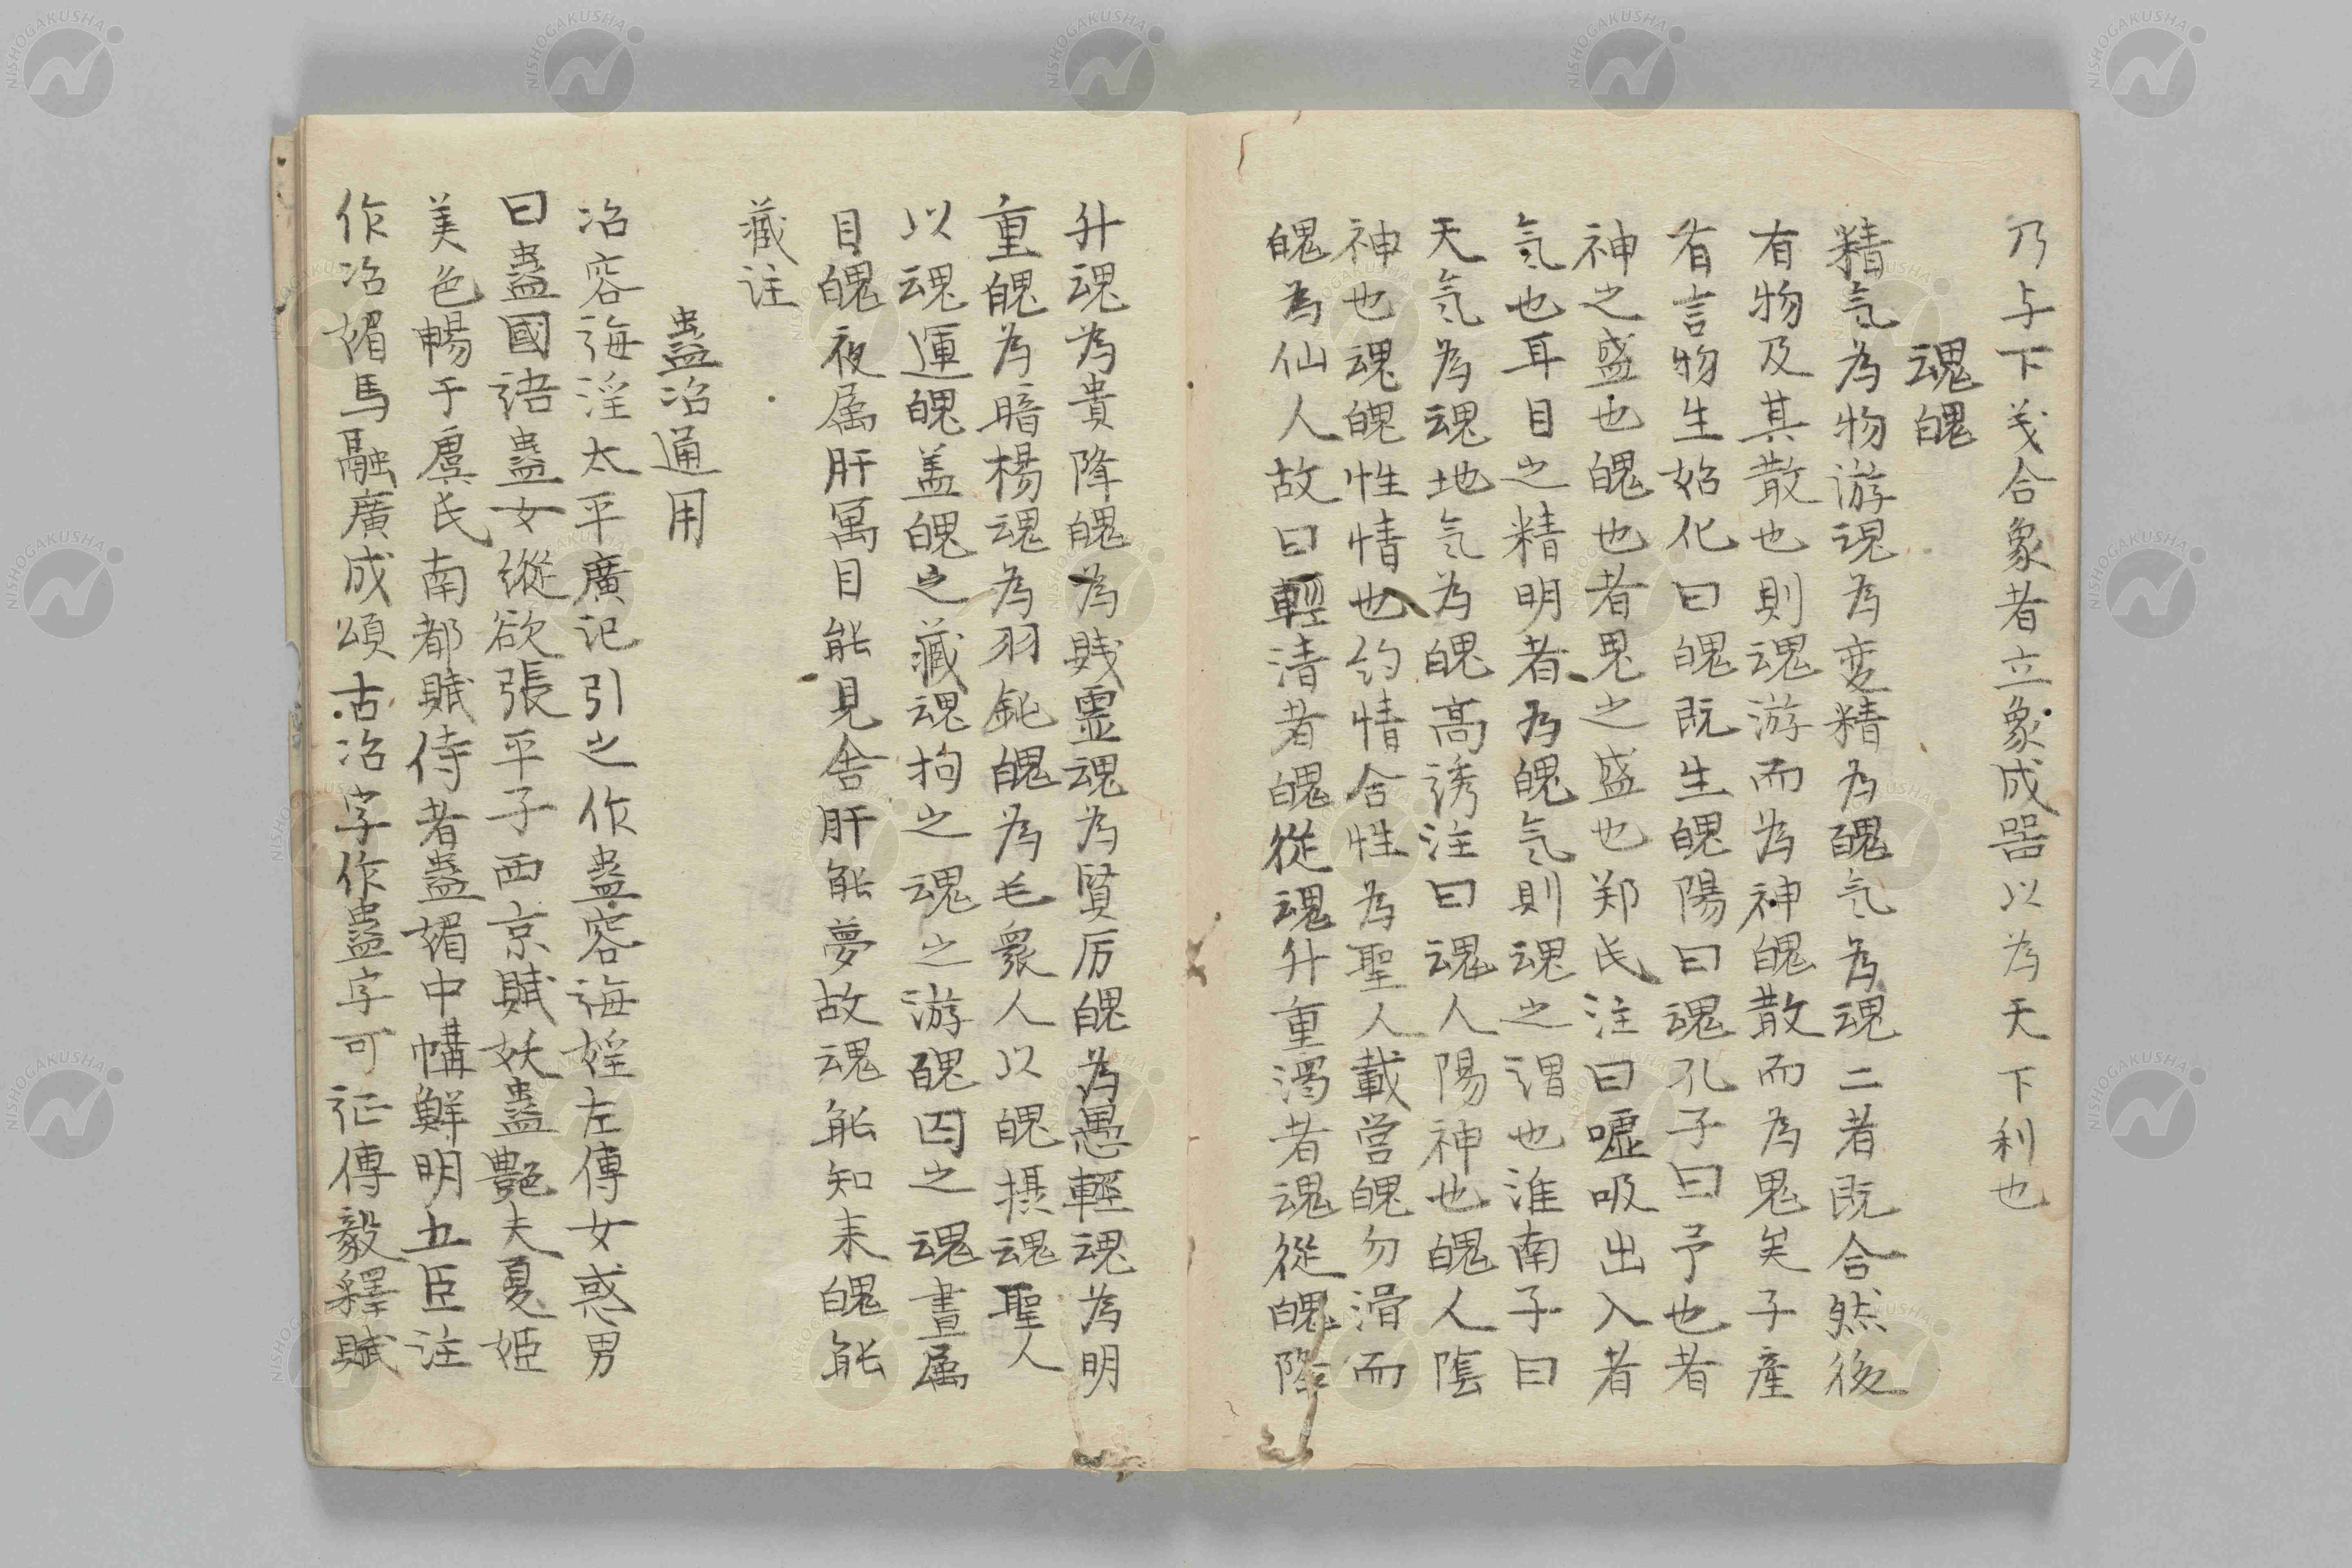 乃与下义合象者立象成器以為天下利也
魂魄
精气為物游魂為変精為魄气為魂二者既合然後
有物及其散也則魂游而為神魄散而為鬼矣子産
有言物生始化曰魄既生魄陽曰魂孔子曰予也者
神之盛也魄也者鬼之盛也郑氏注曰嘘吸出入者
氣也耳目之精明者為魄气則魂之謂也淮南子曰
天气為魂地气為魄高誘注曰魂人陽神也魄人陰
神也魂魄性情也约情合性為聖人載营魄勿滑而
魄為仙人故曰輕清者魄從魂升重濁者魂從魄降
升魂為貴降魄為賎霊魂為賢厉魄為愚輕魂為明
重魄為暗楊魂為羽鈍魄為毛衆人以魄摂魂聖人
以魂運魄盖魄之藏魂拘之魂之游魄囚之魂晝属
目魄夜属肝寓目能見舎肝能夢故魂能知来魄能
藏註
蠱冶通用
冶容誨淫太平廣记引之作蠱容誨婬左傳女惑男
曰蠱國语蠱女縱欲張平子西京賦妖蠱艶夫夏姬
美色暢于虞氏南都賦侍者蠱媚中幬鮮明五臣注
作冶媚馬融廣成頌古冶字作蠱字可征傳毅釋賦